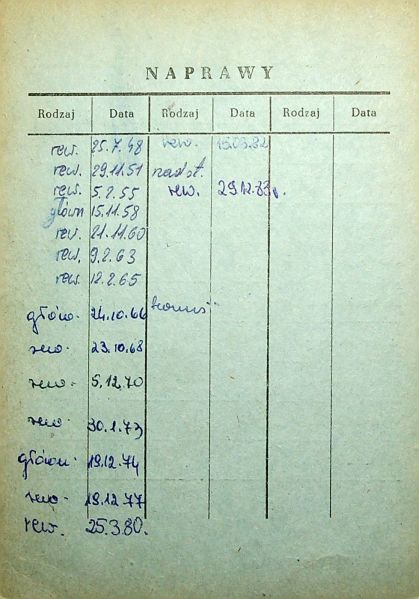 NAPRAWY
Rodzaj Data Rodzaj Data Rodzaj Data
rew. 25.7.48 rew. 15.03.82
rew. 29.11.51 nadst.
rew. 5.2.55 rew. 29.12.83r.
główn 15.11.58
rew. 21.11.60
rew. 9.2.63
rew. 12.2.65
główn. 24.10.66
rew. 23.10.68
rew. 5.12.70
rew. 30.1.73
główn. 19.12.74
rew. 19.12.77
rew. 25.3.80.